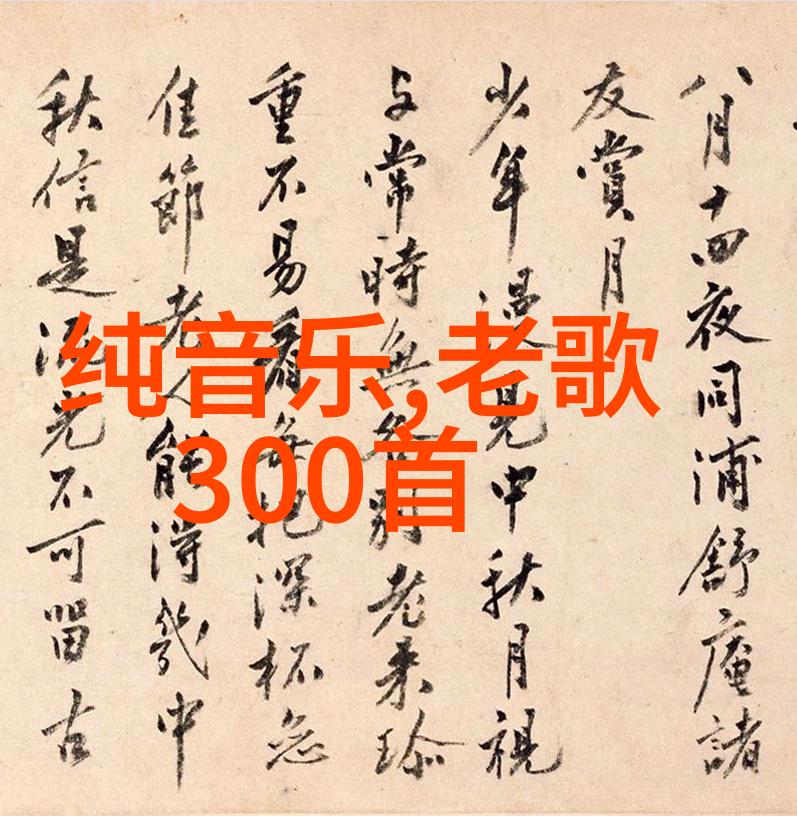 纯音乐,老歌
300首
八月十四夜同浦舒庵諸
友賞月
少年漫見中秋月視
与常時無各別老来珍
重不易看每把深杯念
佳節老人能得幾中
秋信是流光不可留古